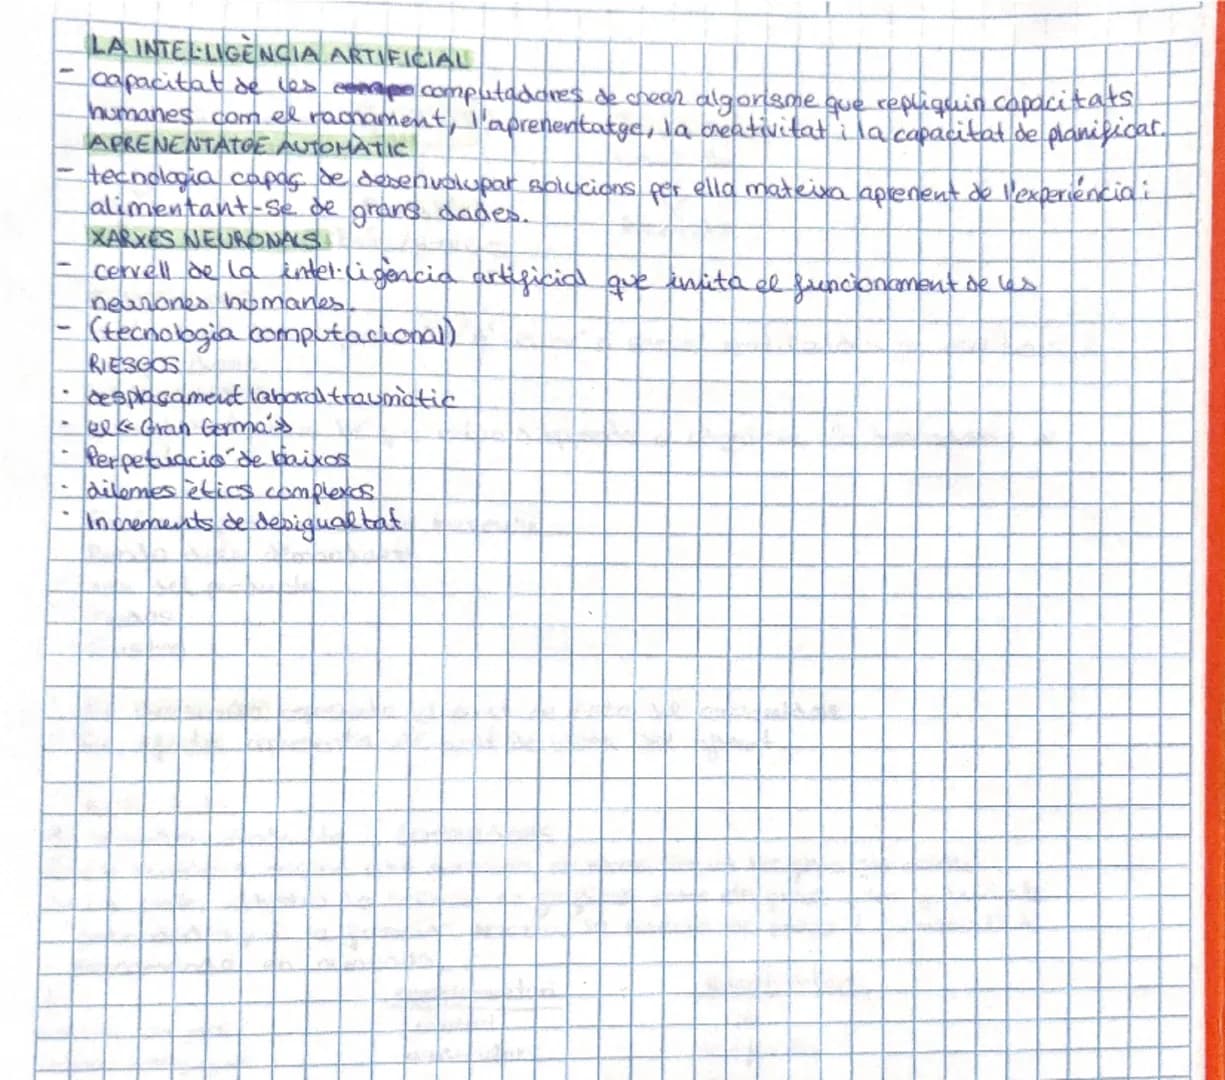 LA INTEL·LIGÈNCIA ARTIFICIAL
- capacitat de les computadores de crear algorisme que repliquin capacitats
humanes com el raonament, l'aprenentatge, la creativitat i la capacitat de planificar.
APRENENTATGE AUTOMÀTIC
- tecnologia capaç de desenvolupar solucions per ella mateixa aprenent de l'experiéncia i
alimentant-se de grans dades.
XARXES NEURONALS
- cervell de la intel·ligència artificial que imita el funcionament de les
neurones humanes.
- (tecnologia computacional)
RIESGOS
· desplaçament laboral traumàtic
· el «Gran Germà»
· Perpetuació de biaixos
· dilemes ètics complexos
· Increments de desigualtat